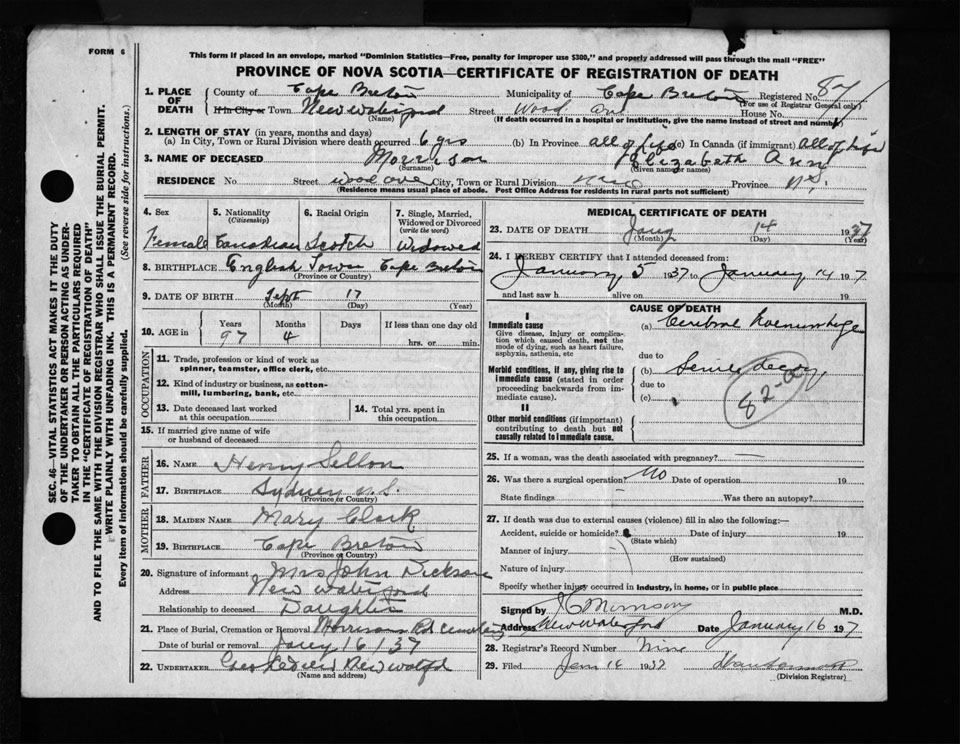 FORM 6
This form if placed in an envelope, marked "Dominion Statistics—Free, penalty for improper use $300," and properly addressed will pass through the mail "FREE"
PROVINCE OF NOVA SCOTIA—CERTIFICATE OF REGISTRATION OF DEATH
SEC. 46—VITAL STATISTICS ACT MAKES IT THE DUTY
OF THE UNDERTAKER OR PERSON ACTING AS UNDER-
TAKER TO OBTAIN ALL THE PARTICULARS REQUIRED
IN THE "CERTIFICATE OF REGISTRATION OF DEATH"
AND TO FILE THE SAME WITH THE DIVISION REGISTRAR WHO SHALL ISSUE THE BURIAL PERMIT.
WRITE PLAINLY WITH UNFADING INK. THIS IS A PERMANENT RECORD.
Every item of information should be carefully supplied. (See reverse side for instructions.)
1. PLACE OF DEATH County of Cape Breton Municipality of Cape Breton Registered No. 87
(For use of Registrar General only)
If in City or Town New Waterford Street Wood Ave House No.
(Name) (If death occurred in a hospital or institution, give the name instead of street and number)
2. LENGTH OF STAY (in years, months and days)
(a) In City, Town or Rural Division where death occurred 6 yrs (b) In Province all of life (c) In Canada (if immigrant) all of life
3. NAME OF DECEASED Morrison Elizabeth Ann
(Surname) (Given name or names)
RESIDENCE No. Street Wood Ave City, Town or Rural Division Province N.S.
(Residence means usual place of abode. Post Office Address for residents in rural parts not sufficient)
4. Sex Female
5. Nationality (Citizenship) Canadian
6. Racial Origin Scotch
7. Single, Married, Widowed or Divorced (write the word) Widowed
8. BIRTHPLACE English Town Cape Breton
(Province or Country)
9. DATE OF BIRTH Sept 17
(Month) (Day) (Year)
10. AGE in Years Months Days If less than one day old
97 4 hrs. or min.
OCCUPATION
11. Trade, profession or kind of work as spinner, teamster, office clerk, etc.
12. Kind of industry or business, as cotton-mill, lumbering, bank, etc.
13. Date deceased last worked at this occupation
14. Total yrs. spent in this occupation
15. If married give name of wife or husband of deceased
FATHER
16. NAME Henry Sellon
17. BIRTHPLACE Sydney N.S.
(Province or Country)
MOTHER
18. MAIDEN NAME Mary Clark
19. BIRTHPLACE Cape Breton
(Province or Country)
20. Signature of informant Mrs John Dickson
Address New Waterford
Relationship to deceased Daughter
21. Place of Burial, Cremation or Removal Morrison Rd Cemetery
Date of burial or removal Jany 16 / 37
22. UNDERTAKER Geo New Watfd
(Name and address)
MEDICAL CERTIFICATE OF DEATH
23. DATE OF DEATH Jany 14 1937
(Month) (Day) (Year)
24. I HEREBY CERTIFY that I attended deceased from:
January 5 1937 to January 14 1937
and last saw h alive on 19
CAUSE OF DEATH
I
Immediate cause
Give disease, injury or complication which caused death, not the mode of dying, such as heart failure, asphyxia, asthenia, etc
(a) Cerebral Haemorrhage
due to
Morbid conditions, if any, giving rise to immediate cause (stated in order proceeding backwards from immediate cause).
(b) Senile decay
due to
(c)
82-a
II
Other morbid conditions (if important) contributing to death but not causally related to immediate cause.
25. If a woman, was the death associated with pregnancy? —
26. Was there a surgical operation? No Date of operation 19
State findings Was there an autopsy?
27. If death was due to external causes (violence) fill in also the following:—
Accident, suicide or homicide? Date of injury 19
(State which)
Manner of injury
(How sustained)
Nature of injury
Specify whether injury occurred in industry, in home, or in public place
Signed by J C Morrison M.D.
Address New Waterford Date January 16 1937
28. Registrar's Record Number Nine
29. Filed Jan 16 1937
(Division Registrar)